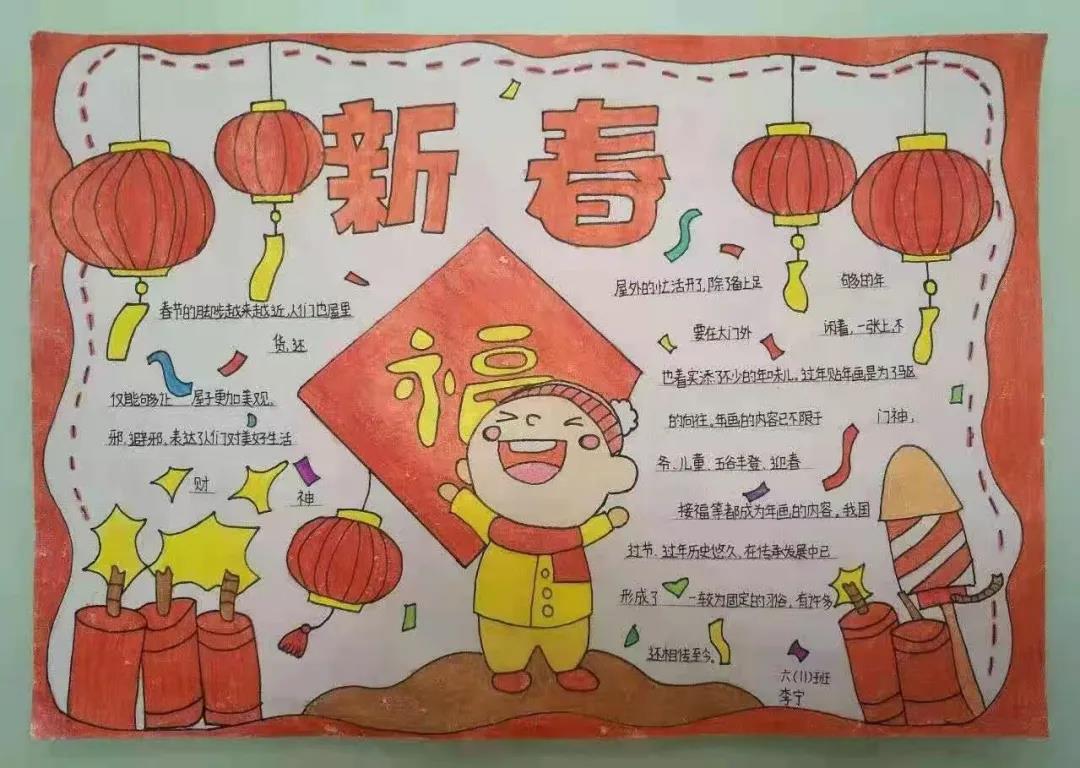 新春
福
春节的脚步越来越近,人们也屋里 屋外的忙活开了,除了备上足 够的年
货,还 要在大门外 闲着,一张上不
仅能够让 屋子更加美观, 也着实添了不少的年味儿。过年贴年画是为了驱
邪、避邪、表达了人们对美好生活 的向往。年画的内容已不限于 门神,
财 神 爷、儿童、五谷丰登、迎春
接福等都成为年画的内容,我国
过节、过年历史悠久,在传承发展中已
形成了 一较为固定的习俗,有许多
还相传至今。
六(11)班
李宁